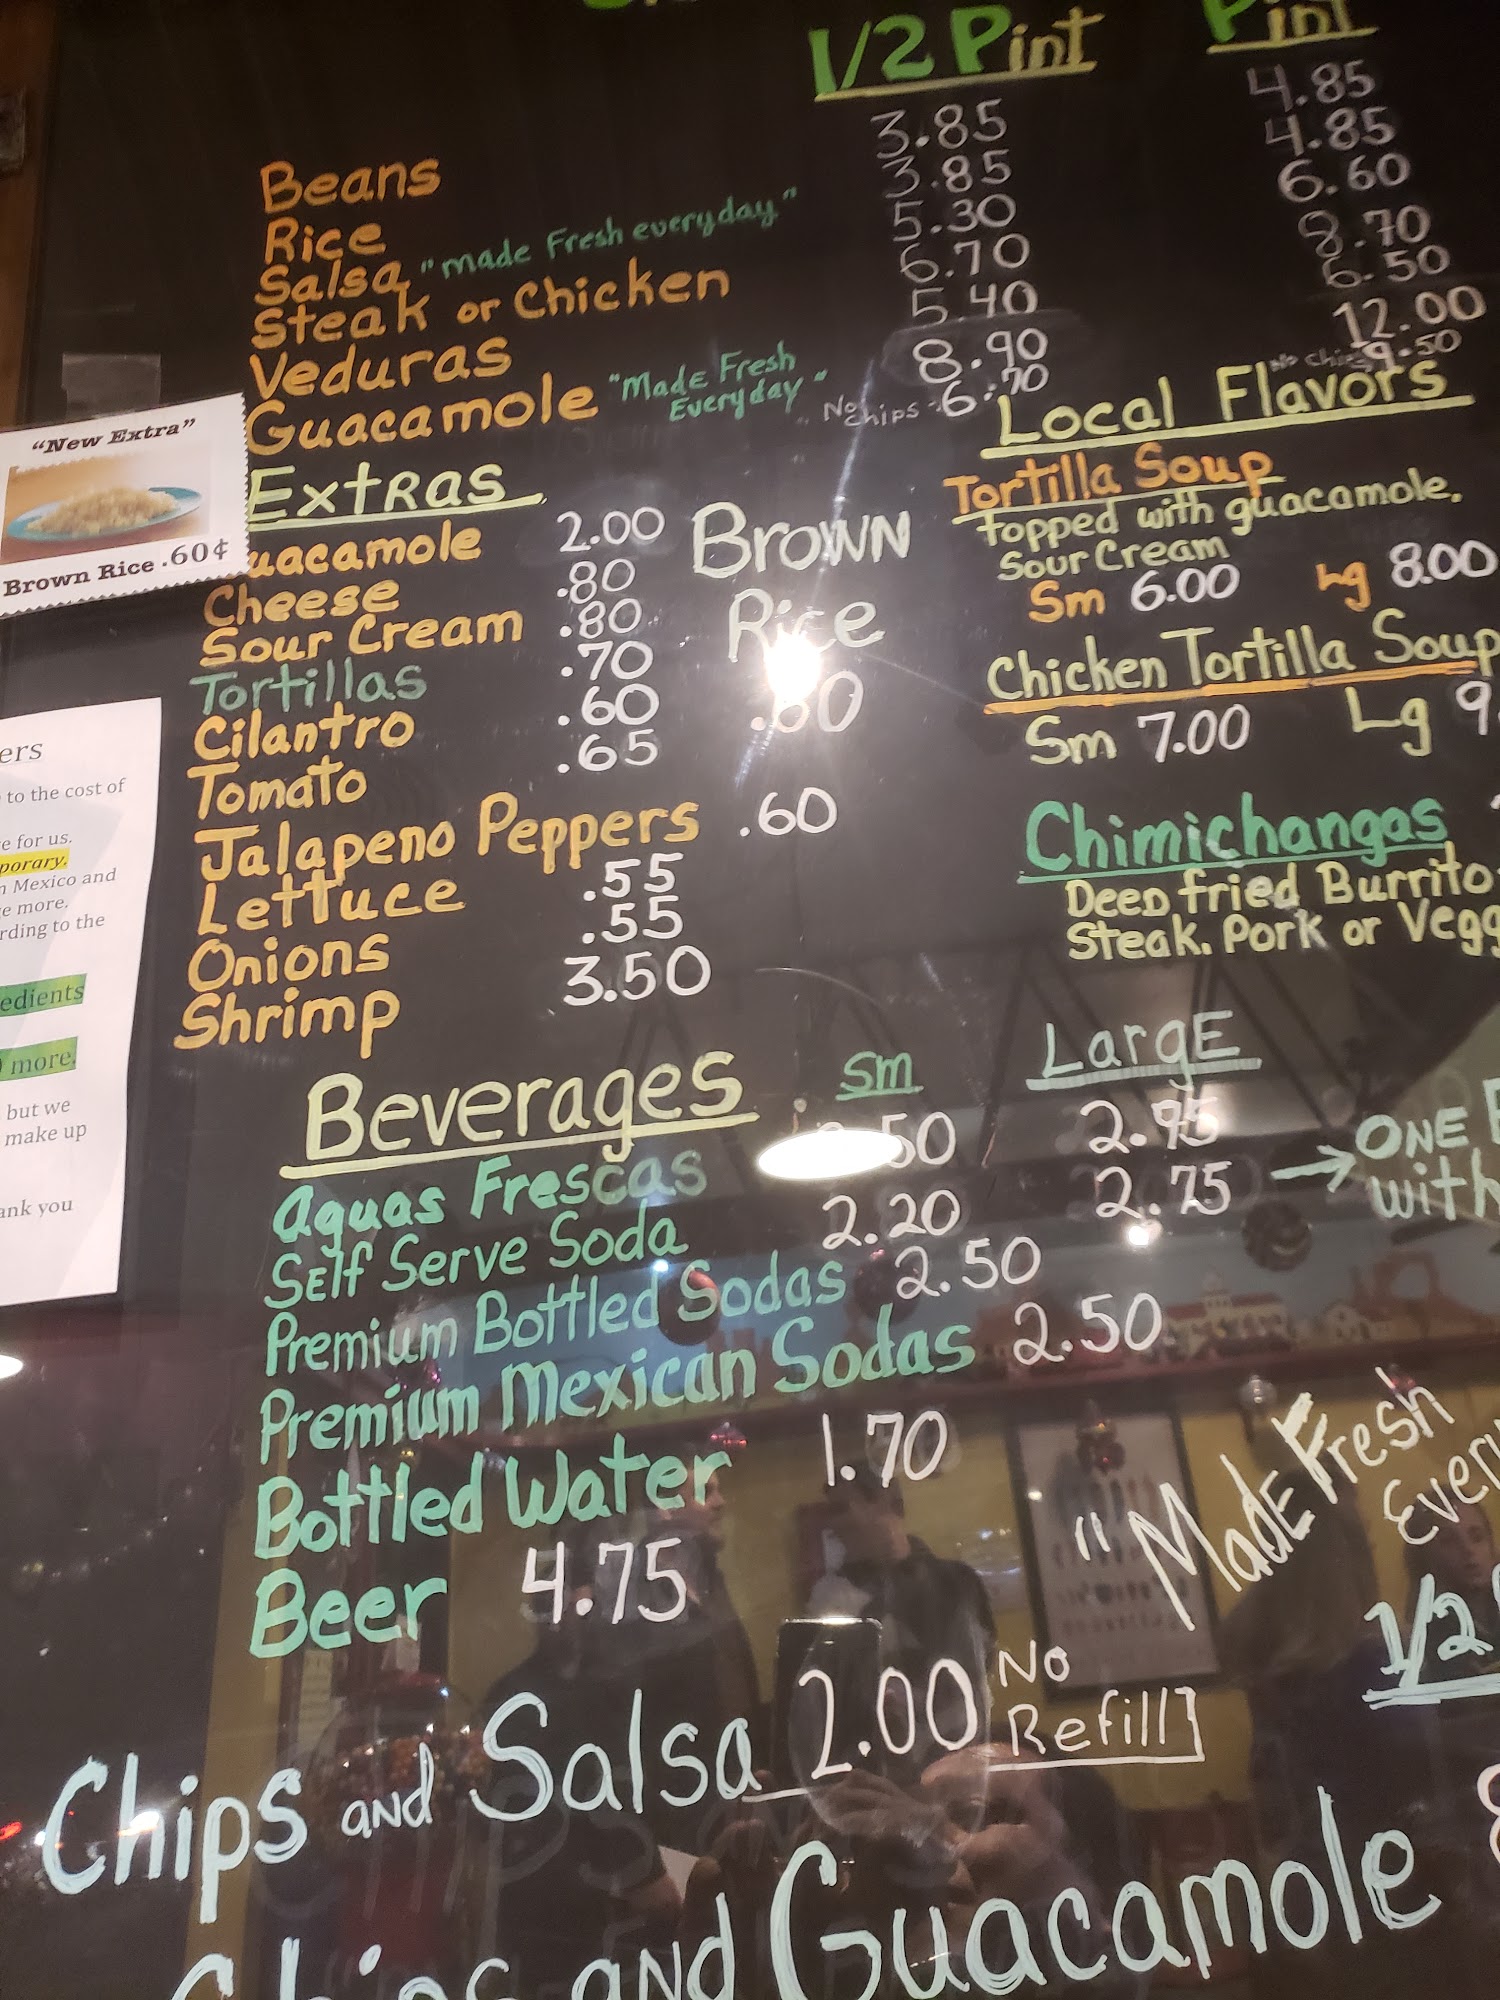 1/2 Pint
Pint
Beans 3.85 4.85
Rice 3.85 4.85
Salsa "made Fresh everyday" 5.30 6.60
Steak or Chicken 6.70 8.70
Veduras 5.40 6.50
Guacamole "Made Fresh Everyday" 8.90 12.00
No Chips 6.70
No Chips 9.50
"New Extra"
Brown Rice .60¢
Extras
uacamole 2.00
Cheese .80
Sour Cream .80
Tortillas .70
Cilantro .60
Tomato .65
Jalapeno Peppers .60
Lettuce .55
Onions .55
Shrimp 3.50
Brown
Rice
.60
Local Flavors
Tortilla Soup
topped with guacamole.
Sour Cream
Sm 6.00 Lg 8.00
Chicken Tortilla Soup
Sm 7.00 Lg 9.
Chimichangas
Deep fried Burrito
Steak. Pork or Vegg
ers
to the cost of
e for us.
porary.
n Mexico and
e more.
rding to the
edients
more.
but we
make up
ank you
Beverages Sm Large
Aguas Frescas .50 2.95
Self Serve Soda 2.20 2.75
→ ONE
with
Premium Bottled Sodas 2.50
Premium Mexican Sodas 2.50
Bottled Water 1.70
Beer 4.75
"Made Fresh
Every
1/2
Chips and Salsa 2.00 No
Refill
Chips and Guacamole